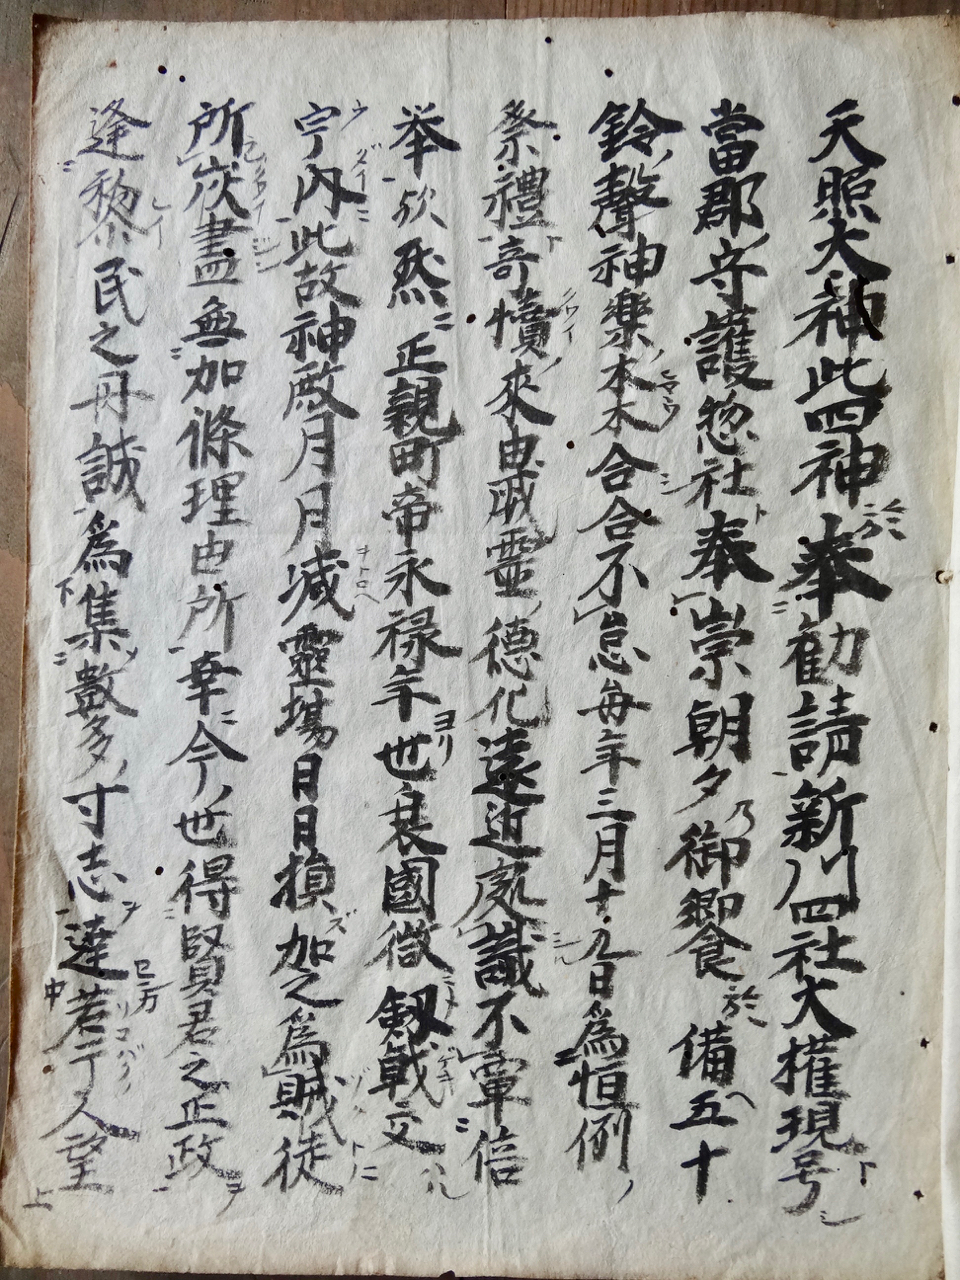 天照大神此四神於奉勧請新川四社大権現号
當郡守護惣社奉崇朝夕乃御御食於備五十
鈴聲神樂本木合合不怠毎年三月十九日為恒例
祭禮奇犢來由威靈徳化遠近處識不葷倍
挙欣然正親町帝永禄年ヨリ世衰國微劔戟交
宇内此故神殿月月減靈場日日損加之為賊徒
所灰盡無加條理由所幸今世得賢君之正政
逢黎民之丹誠為集數多寸志達若干人望